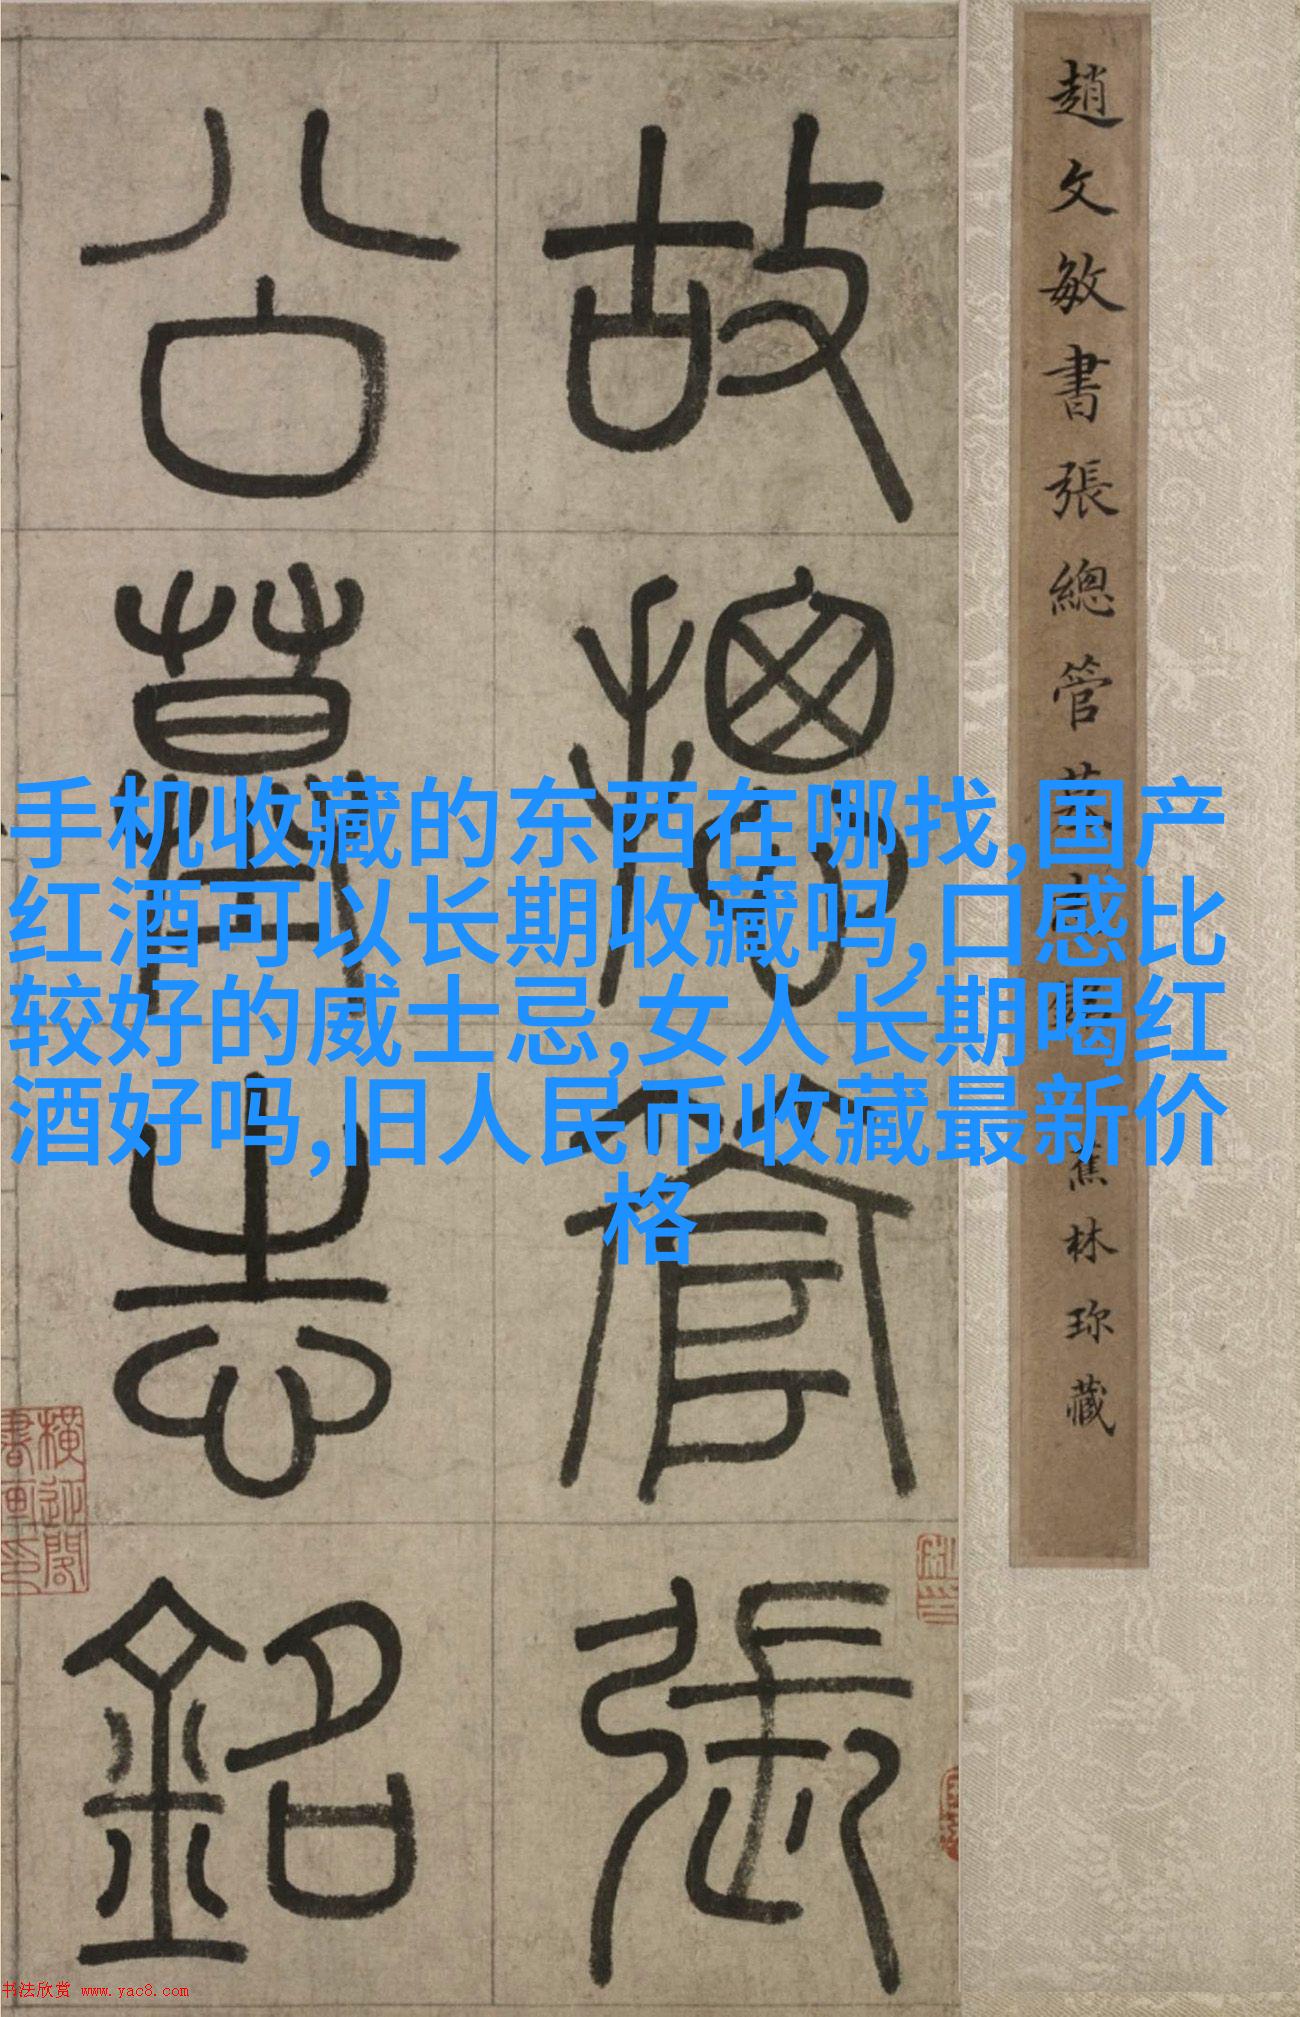 趙文敏書張總管
蕉林珍藏
故摠管張
公墓志銘
手机收藏的东西在哪找,国产
红酒可以长期收藏吗,口感比
较好的威士忌,女人长期喝红
酒好吗,旧人民币收藏最新价
格
书法欣赏 www.yac8.com